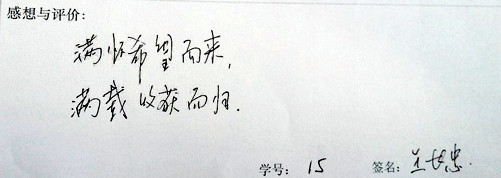 感想与评价:
满怀希望而来,
满载收获而归.
学号: 15 签名: